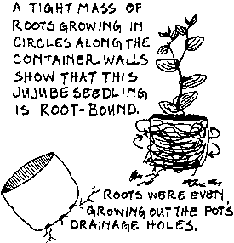 A TIGHT MASS OF
ROOTS GROWING IN
CIRCLES ALONG THE
CONTAINER WALLS
SHOW THAT THIS
JUJUBE SEEDLING
IS ROOT-BOUND.
ROOTS WERE EVEN
GROWING OUT THE POT'S
DRAINAGE HOLES.